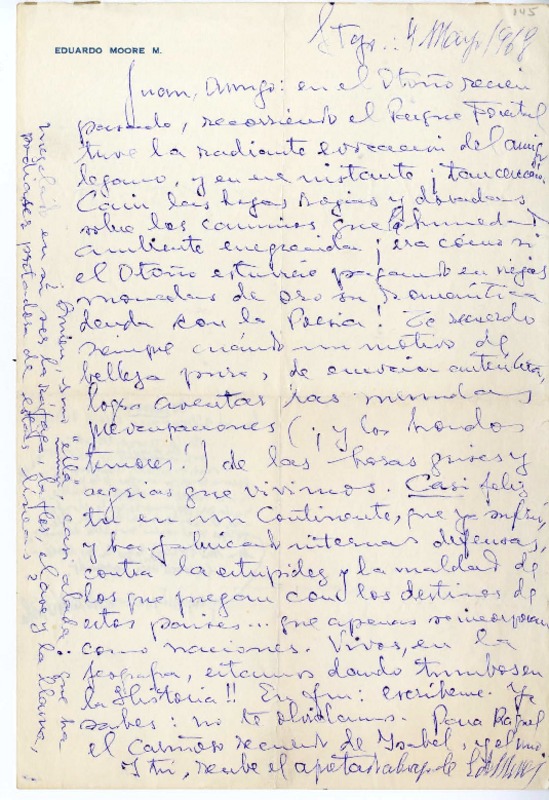 145
EDUARDO MOORE M.
Stgo.: 4 Mayo/1968
Juan, Amigo: en el Otoño recien
pasado, recorriendo el Parque Forestal
tuve la radiante evocacion del amigo
lejano, y en ese instante ¡
Caian las hojas rojas y doradas
sobre los caminos que la humedad
ambiente ennegrecida ¡era cómo si
el Otoño estuviese pagando en viejas
monedas de oro su romántica
deuda con la Poesia! Te recuerdo
siempre cuándo un motivo de
belleza pura, de emocion autentica,
logra aventar las menudas
preocupaciones (¡y los hondos
temores!) de las horas grises y
negras que vivimos. Casi feliz
tu en un Continente, que ya sufrió,
y ha fabricado internas defensas,
contra la estupidez y la maldad de
los que juegan con los destinos de
estos paises... que apenas se incorporan
como naciones. Vivos, en la
geografia, estamos dando tumbos en
la Historia!! En fin: escribeme. Ya
sabes: no te olvidamos. Para Rafael
el cariñoso recuerdo de Isabel, y el mio
Y tú, recibe el apretado abrazo de
¿Quien, sino "ella", casi alada.. que ha
mezclado en su ser la ráfaga, la flor, el ave y la llama,
podia ser portadora de estas lineas?